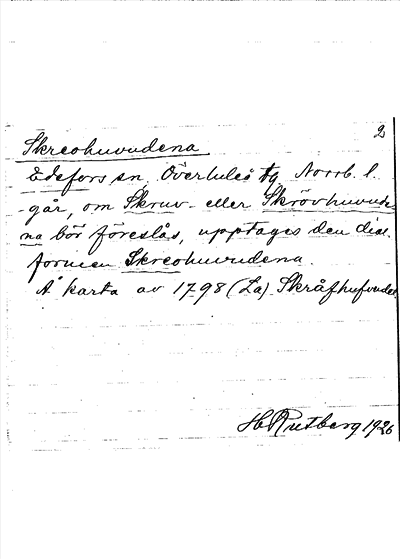 2
Skreohuvudena
Edefors sn Överluleå tg Norrb. l.
-går, om Skruv- eller Skrövhuvude-
na bör föreslås, upptages den dial.
formen Skreohuvudena.
Å karta av 1798 (La) Skråfhufvudena
H Rutberg 1926